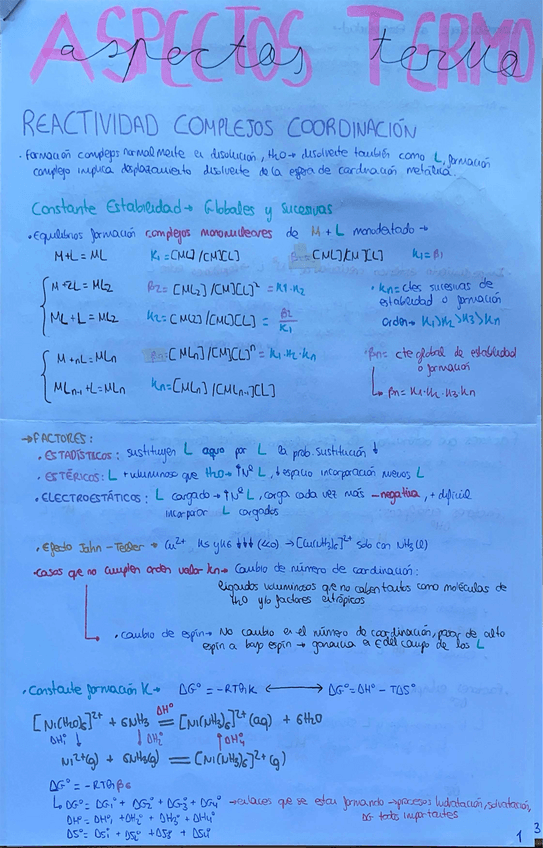 ASPECTOS TERMO
aspectos termo
REACTIVIDAD COMPLEJOS COORDINACIÓN
· Formación complejos normalmente en disolución, H₂O → disolvente también como L, formación
complejo implica desplazamiento disolvente de la esfera de coordinación metálica.
Constante Estabilidad → Globales y Sucesivas
· Equilibrios formación complejos mononucleares de M + L monodentado →
M+L = ML K₁ = [ML]/[M][L] β₁ = [ML]/[M][L] K₁ = β₁
M+2L = ML₂ β₂ = [ML₂]/[M][L]² = K₁·K₂ · Kn = ctes sucesivas de
estabilidad o formación
ML+L = ML₂ K₂ = [ML₂]/[ML][L] = β₂/K₁ orden → K₁>K₂>K₃>Kn
M+nL = MLn βn = [MLn]/[M][L]ⁿ = K₁·K₂·Kn · βn = cte global de estabilidad
o formación
MLn-1+L = MLn Kn = [MLn]/[MLn-1][L] βn = K₁·K₂·K₃·Kn
→ FACTORES:
· ESTADÍSTICOS: sustituyen L agua por L la prob. sustitución ↓
· ESTÉRICOS: L + voluminoso que H₂O → ↑Nº L, ↓espacio incorporación nuevos L
· ELECTROESTÁTICOS: L cargado → ↑Nº L, carga cada vez más −negativa, + difícil
incorporar L cargados
· Efecto Jahn-Teller → Cu²⁺ K₅ y K₆ ↓↓↓ (<<0) → [Cu(NH₃)₆]²⁺ solo con NH₃(l)
· Casos que no cumplen orden valor Kn → Cambio de número de coordinación:
ligandos voluminosos que no caben tantos como moléculas de
H₂O y/o factores entrópicos
· cambio de espín → No cambio en el número de coordinación, pasar de alto
espín a bajo espín → ganancia en E del campo de los L
· Constante formación K → ΔG° = −RTlnK ⟷ ΔG° = ΔH° − TΔS°
ΔH°
[Ni(H₂O)₆]²⁺ + 6NH₃ = [Ni(NH₃)₆]²⁺(aq) + 6H₂O
ΔH₁° ↓ ↓ΔH₂° ↑ΔH₄°
Ni²⁺(g) + 6NH₃(g) = [Ni(NH₃)₆]²⁺(g)
ΔG° = −RTlnβ₆
↳ ΔG° = ΔG₁° + ΔG₂° + ΔG₃° + ΔG₄° → enlaces que se están formando → procesos hidratación, solvatación,
ΔG todos importantes
ΔH° = ΔH₁° + ΔH₂° + ΔH₃° + ΔH₄°
ΔS° = ΔS₁° + ΔS₂° + ΔS₃° + ΔS₄°
1 3